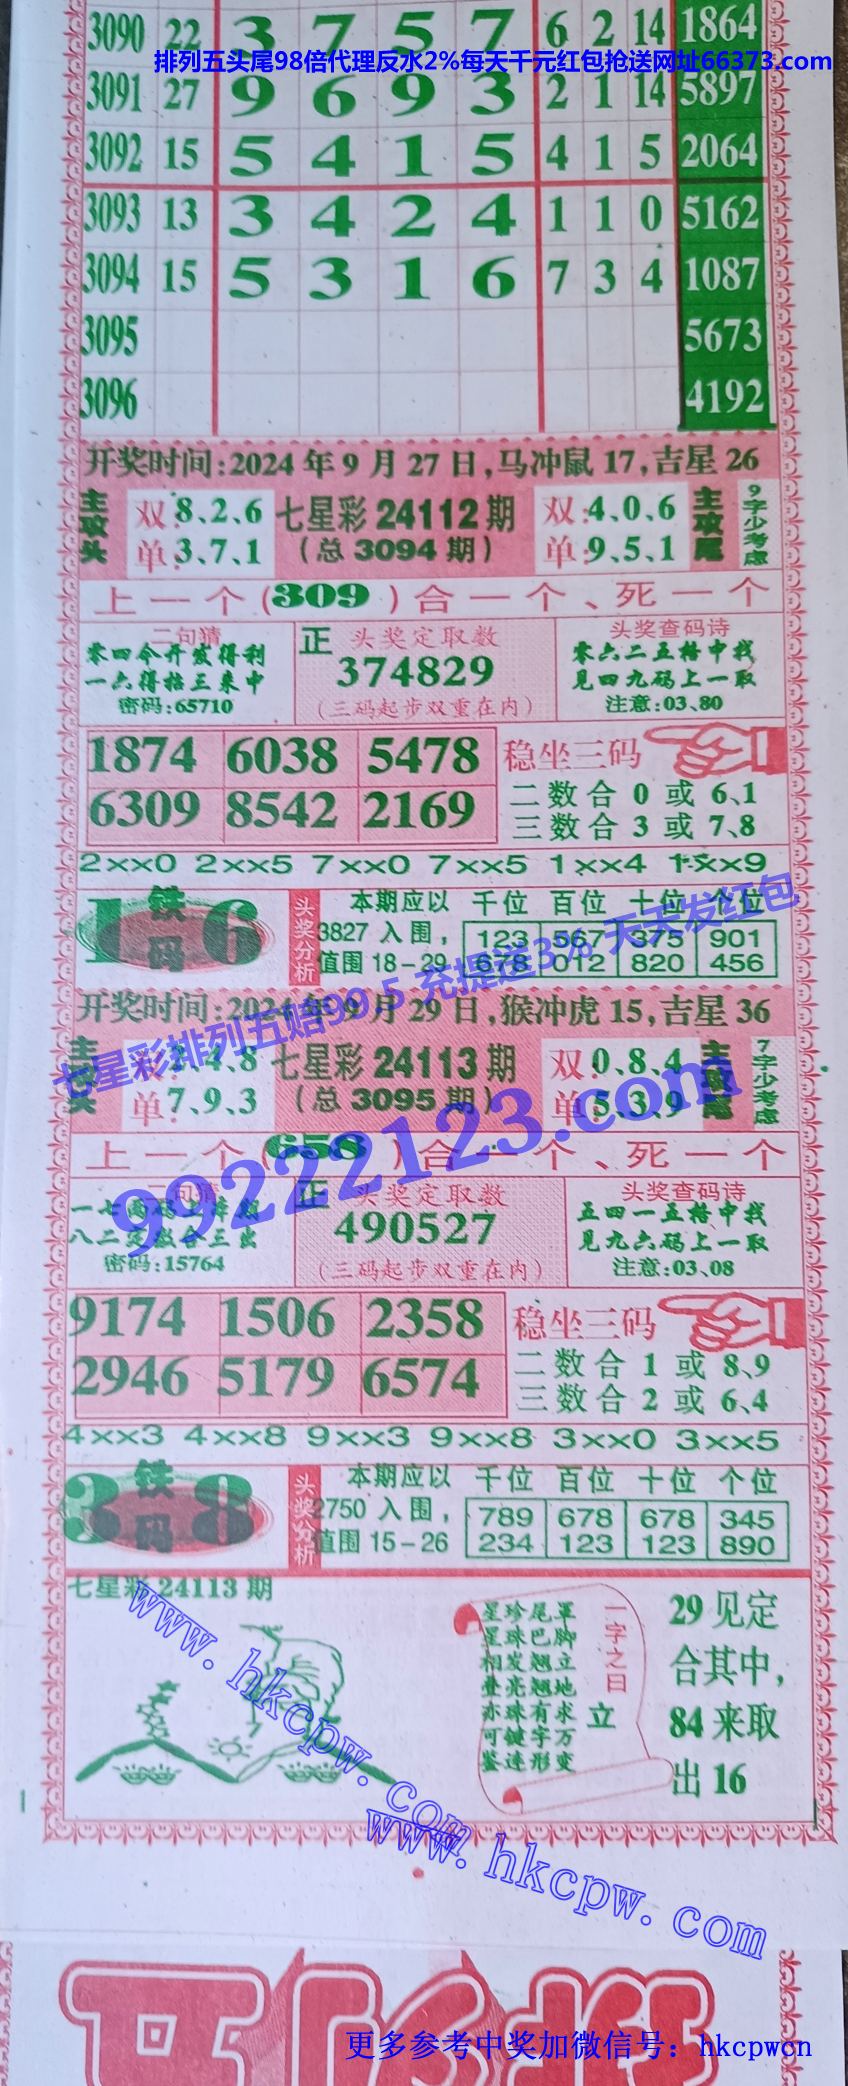 3090 22 3 7 5 7 6 2 14 1864
排列五头尾98倍代理反水2%每天千元红包抢送网址66373.com
3091 27 9 6 9 3 2 1 14 5897
3092 15 5 4 1 5 4 1 5 2064
3093 13 3 4 2 4 1 1 0 5162
3094 15 5 3 1 6 7 3 4 1087
3095 5673
3096 4192
开奖时间:2024年9月27日,马冲鼠17,吉星26
主攻头 双:8、2、6 七星彩24112期 双:4、0、6 主攻尾 9字少考虑
单:3、7、1 (总3094期) 单:9、5、1
上一个(309)合一个、死一个
二句猜 正 头奖定取数 头奖查码诗
零四今开发得利 374829 零六二五格中找
一六得拾三来中 (三码起步双重在内) 见四九码上一取
密码:65710 注意:03、80
1874 6038 5478 稳坐三码
6309 8542 2169 二数合0或6、1
三数合3或7、8
2××0 2××5 7××0 7××5 1××4 1××9
16 铁码 头奖分析 本期应以 千位 百位 十位 个位
3827入围, 123 567 375 901
值围18-29 678 012 820 456
七星彩排列五赔99.5 充提送3% 天天发红包
开奖时间:2024年9月29日,猴冲虎15,吉星36
主攻头 双:2、4、8 七星彩24113期 双:0、8、4 主攻尾 7字少考虑
单:7、9、3 (总3095期) 单:5、3、9
上一个(658)合一个、死一个
99222123.com
二句猜 正 头奖定取数 头奖查码诗
490527 五四一五格中找
八二定数合三出 (三码起步双重在内) 见九六码上一取
密码:15764 注意:03、08
9174 1506 2358 稳坐三码
2946 5179 6574 二数合1或8、9
三数合2或6、4
4××3 4××8 9××3 9××8 3××0 3××5
38 铁码 头奖分析 本期应以 千位 百位 十位 个位
2750入围, 789 678 678 345
值围15-26 234 123 123 890
七星彩24113期
星珍尾单
星珠巴脚
相发翘立
叠亮翘地
亦珠有求
可键字万
鉴迷形变
一字之曰
立
29见定
合其中,
84来取
出16
www.hkcpw.com
www.hkcpw.com
更多参考中奖加微信号：hkcpwcn